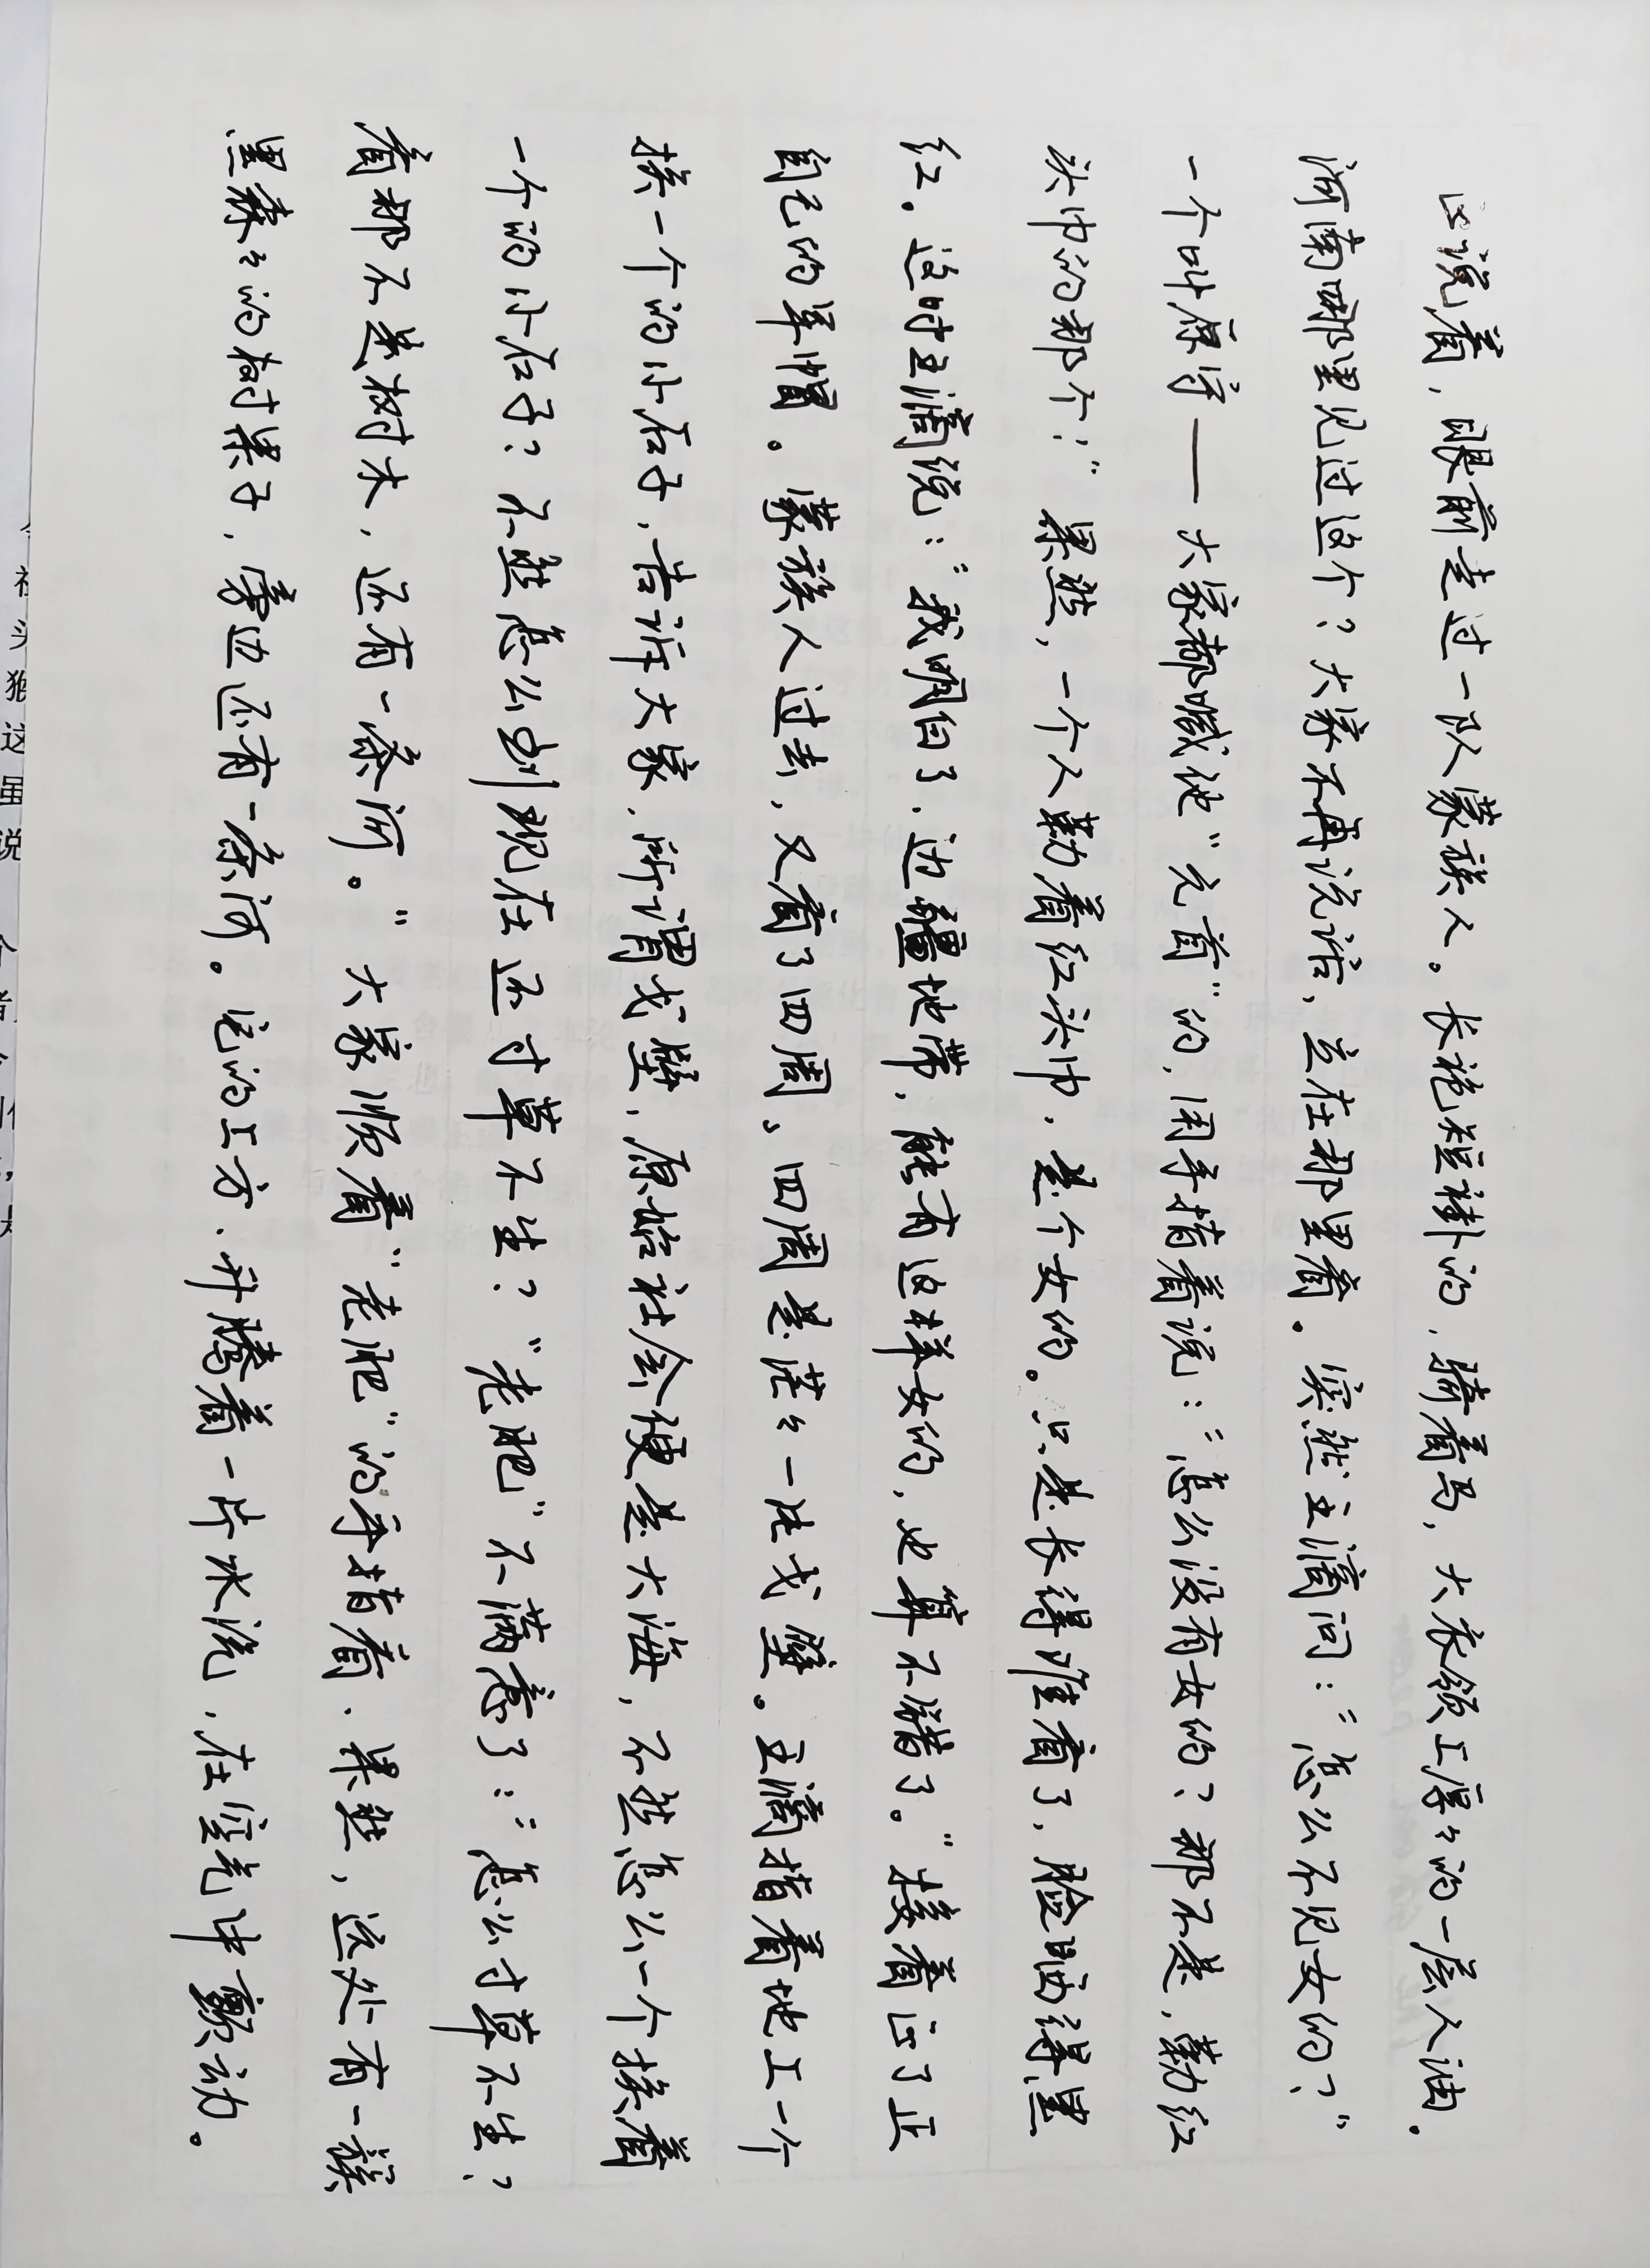 正说着，眼前走过一队蒙族人。长袍短褂的，骑着马，大衣领上厚々的一层人油。
河南哪里见过这个？大家不再说话，立在那里看。突然王滴问：“怎么不见女的？”
一个叫原守——大家都喊他“元首”的，用手指着说：“怎么没有女的？那不是，勒红
头巾的那个！”果然，一个人勒着红头巾，是个女的。只是长得难看了，脸晒得黑
红。这时王滴说：“我明白了，边疆地带，能有这样女的，也算不错了。”接着正了正
自己的军帽。蒙族人过去，又看了四周。四周是茫々一片戈壁。王滴指着地上一个
挨一个的小石子，告诉大家，所谓戈壁，原始社会便是大海，不然怎么一个挨着
一个的小石子？不然怎么到现在还寸草不生？“老肥”不满意了：“怎么寸草不生？
看那不是树木，还有一条河。”大家顺着“老肥”的手指看，果然，远处有一簇
黑森々的树果子，旁边还有一条河。它的上方，升腾着一片水汽，在空气中颤动。